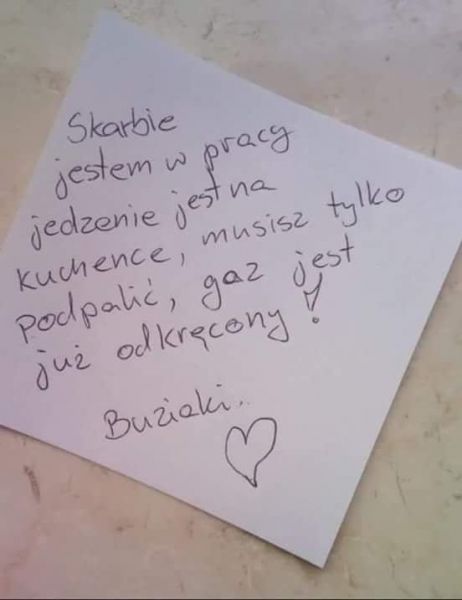 Skarbie
jestem w pracy
jedzenie jest na
kuchence, musisz tylko
podpalić, gaz jest
już odkręcony!
Buziaki..